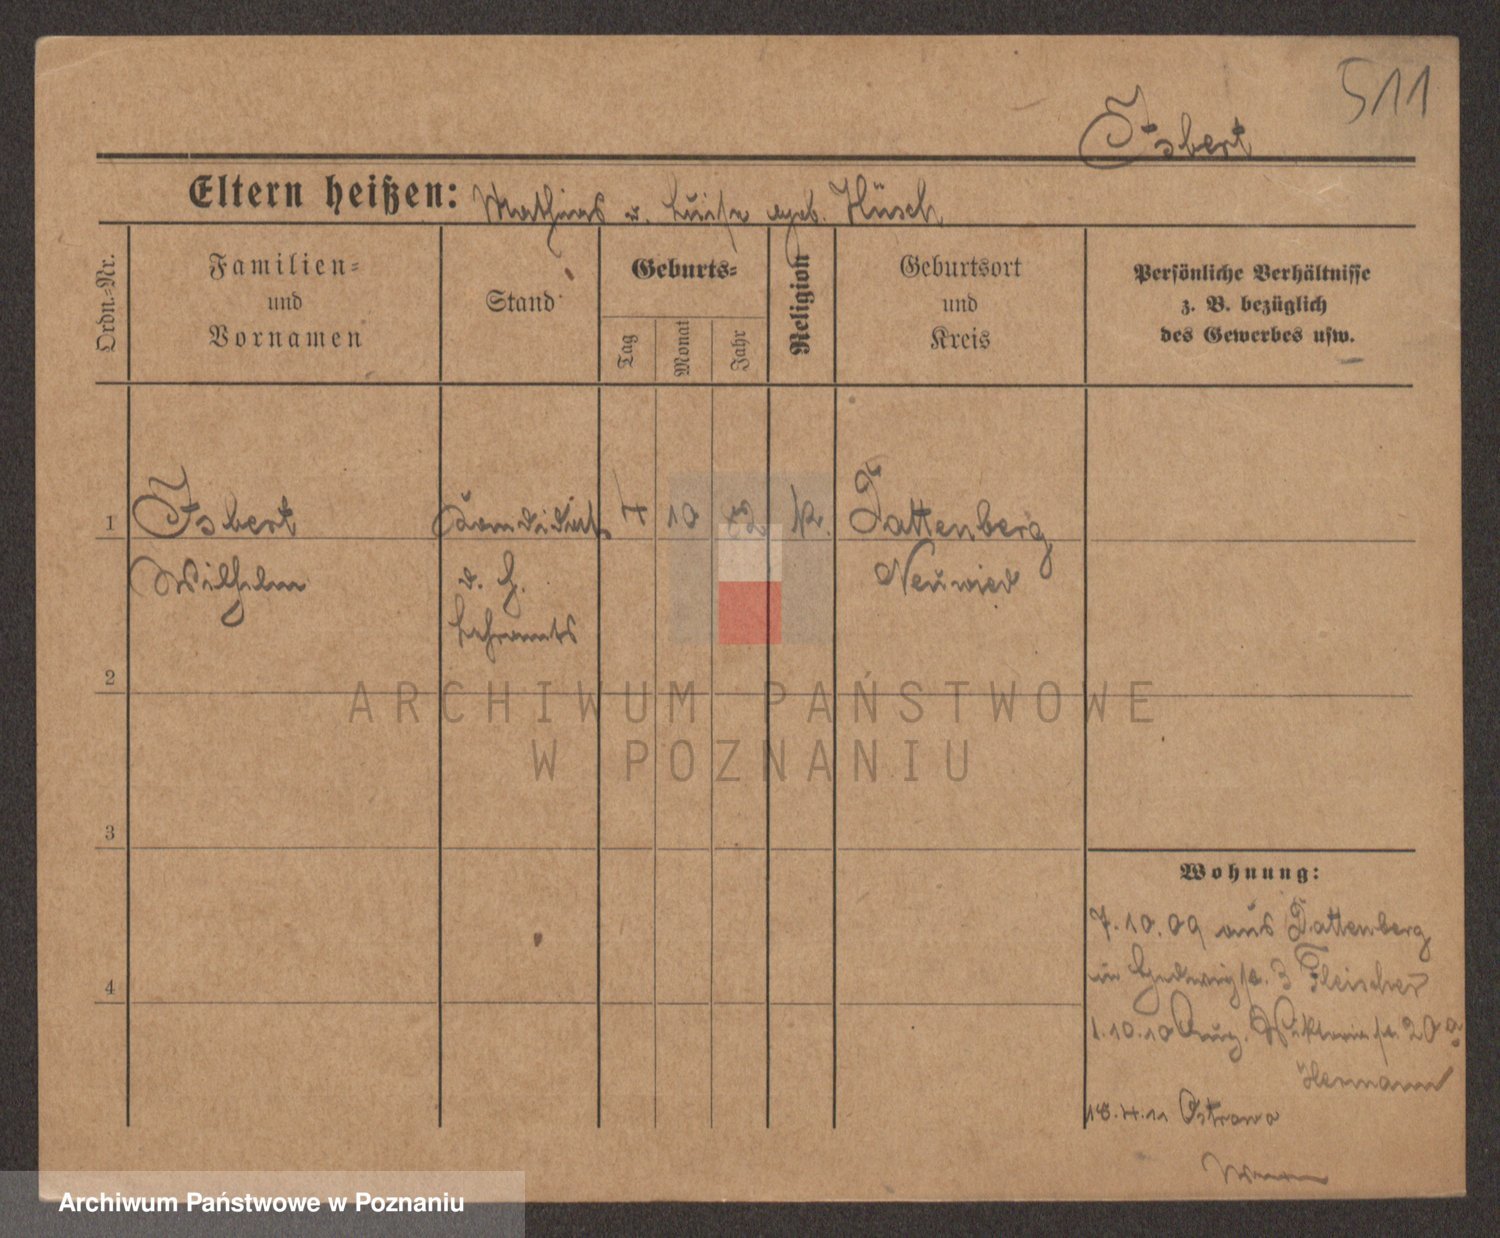 511
Isbert
Eltern heißen: Mathias u. Luise geb. Hüsch
Ordn.-Nr.
Familien-
und
Vornamen
Stand
Geburts-
Tag
Monat
Jahr
Religion
Geburtsort
und
Kreis
Persönliche Verhältnisse
z. B. bezüglich
des Gewerbes usw.
1
Isbert
Wilhelm
Kandidat
d. h.
Lehramts
4 10 k.
Dattenberg
Neuwied
2
3
4
Wohnung:
7.10.09 aus Dattenberg
in Hedwigstr. 3 Fleischer
1.10.10 Aug. Viktoriastr. 20a
Hermann
18.4.11 Ostrowo
ARCHIWUM PAŃSTWOWE
W POZNANIU
Archiwum Państwowe w Poznaniu